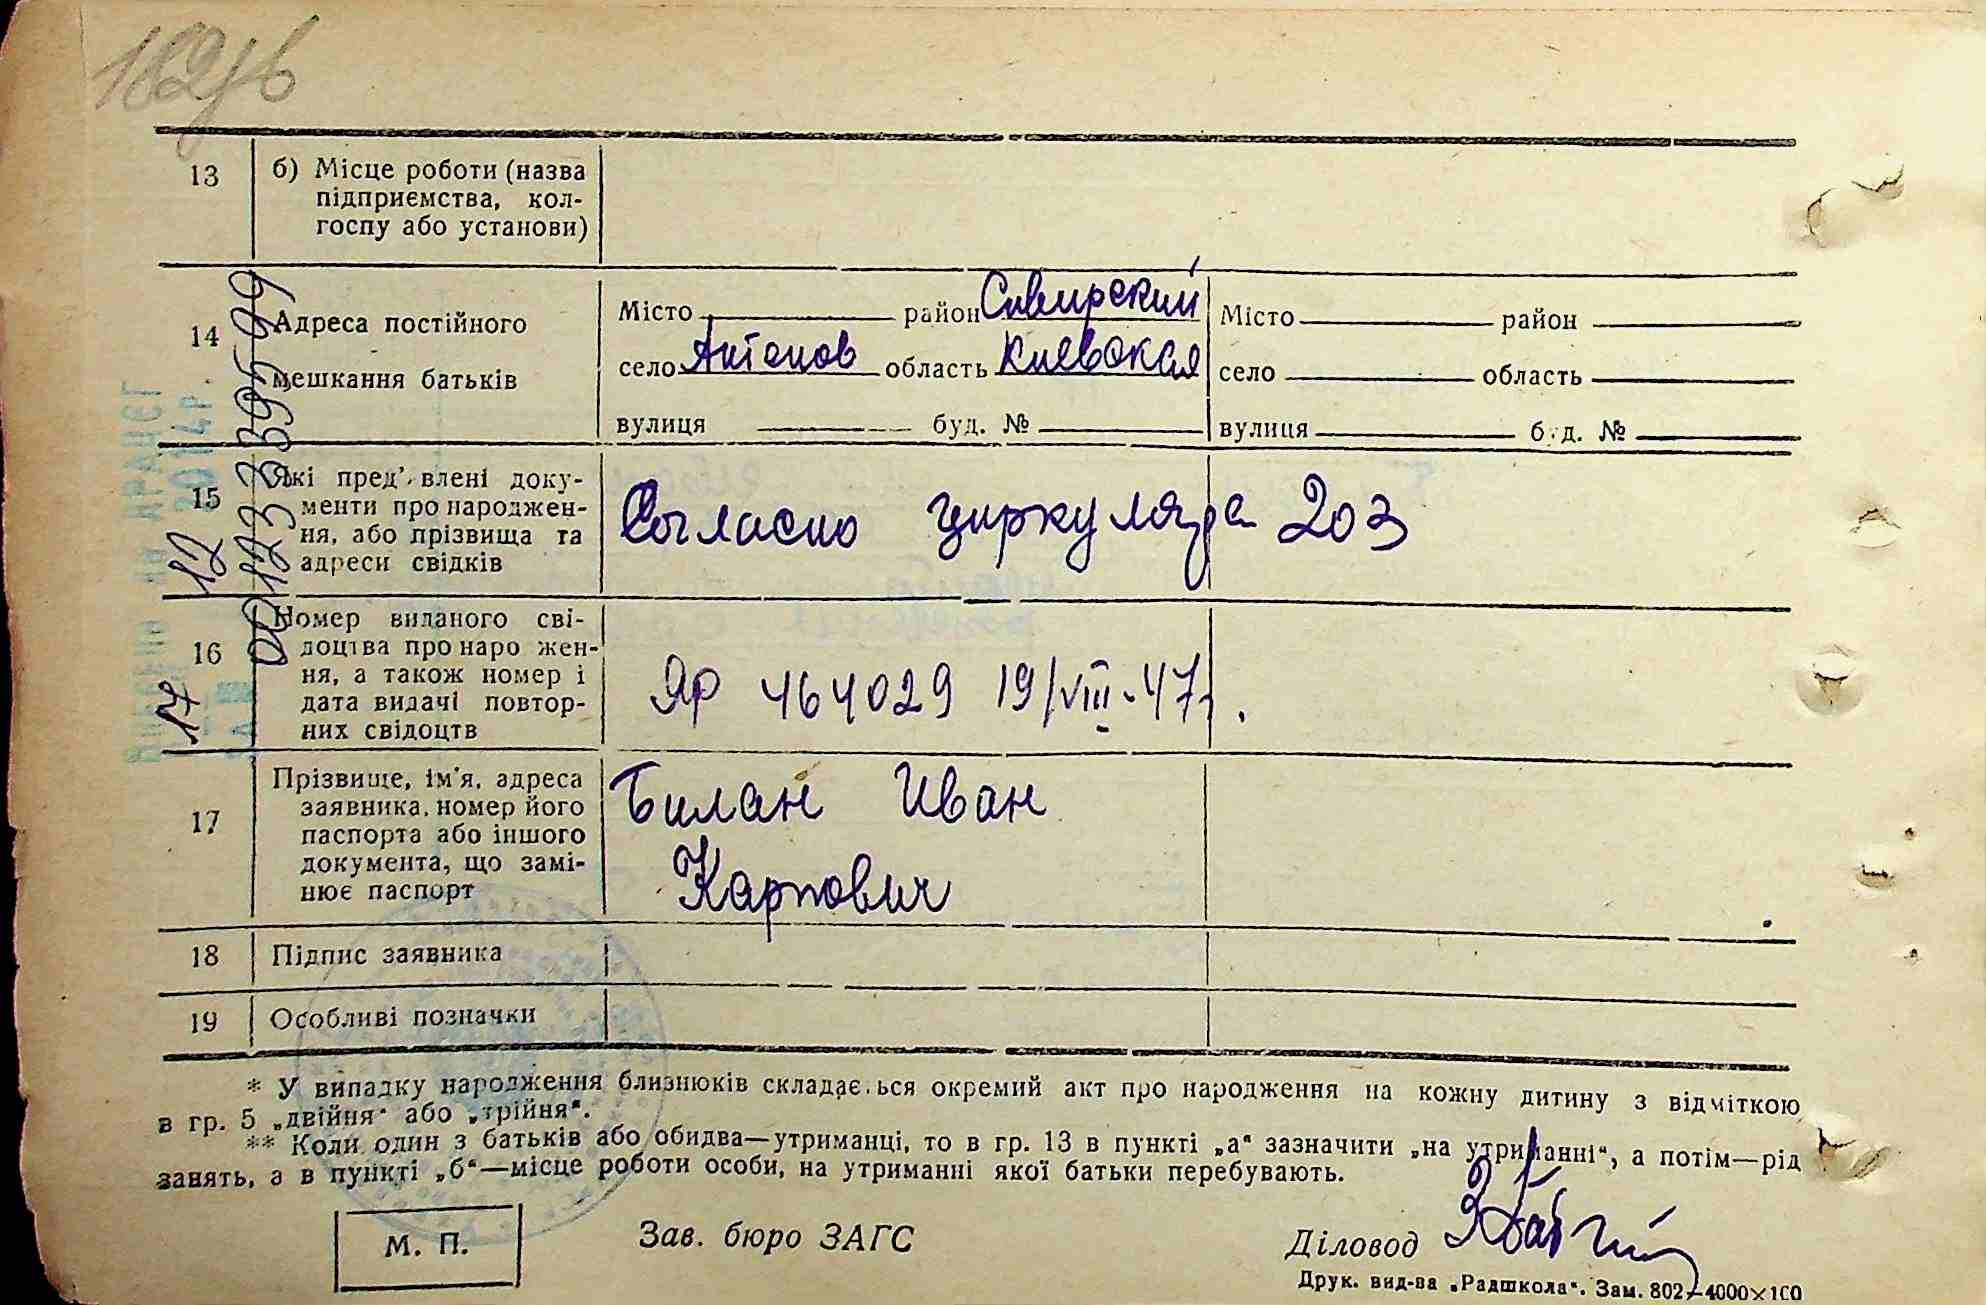 13 б) Місце роботи (назва
підприємства, кол-
госпу або установи)
14 Адреса постійного
мешкання батьків
Місто район Сквирский Місто район
село Антонов область Киевская село область
вулиця буд. № вулиця буд. №
15 Які пред' влені доку-
менти про народжен-
ня, або прізвища та
адреси свідків
Согласно циркуляра 203
16 Номер виданого сві-
доцтва про наро жен-
ня, а також номер і
дата видачі повтор-
них свідоцтв
ЯР 464029 19/VIII-47г.
17 Прізвище, ім'я, адреса
заявника, номер його
паспорта або іншого
документа, що замі-
нює паспорт
Билан Иван
Карпович
18 Підпис заявника
19 Особливі позначки
* У випадку народження близнюків складає ься окремий акт про народження на кожну дитину з відміткою
в гр. 5 „двійня" або „трійня".
** Коли один з батьків або обидва—утриманці, то в гр. 13 в пункті „а" зазначити „на утриманні", а потім—рід
занять, а в пункті „б"—місце роботи особи, на утриманні якої батьки перебувають.
М. П. Зав. бюро ЗАГС Діловод
Друк. вид-ва „Радшкола". Зам. 802—4000×100
17 12
00123339599